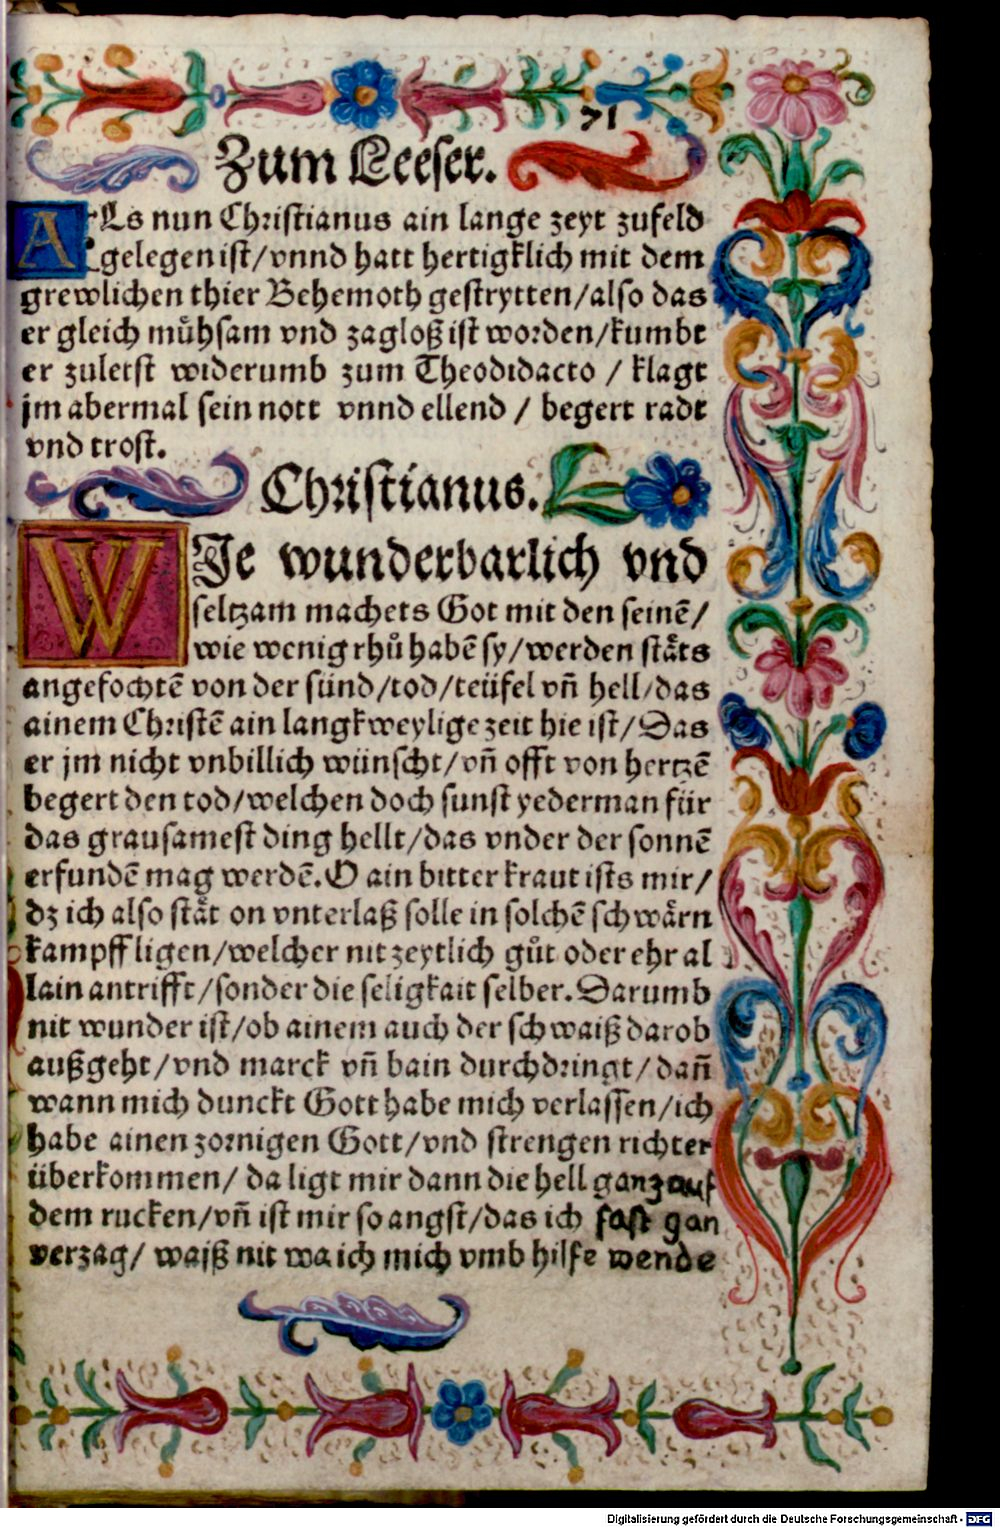 71
Zum Leeser.
ALs nun Christianus ain lange zeyt zufeld
gelegen ist/vnnd hatt hertigklich mit dem
grewlichen thier Behemoth gestrytten/also das
er gleich můhsam vnd zagloß ist worden/kumbt
er zuletst widerumb zum Theodidacto / klagt
jm abermal sein nott vnnd ellend / begert radt
vnd trost.
Christianus.
WIe wunderbarlich vnd
seltzam machets Got mit den seinē/
wie wenig rhů habē sy/werden stäts
angefochtē von der sünd/tod/teüfel vñ hell/das
ainem Christē ain langkweylige zeit hie ist/Das
er jm nicht vnbillich wünscht/vñ offt von hertzē
begert den tod/welchen doch sunst yederman für
das grausamest ding hellt/das vnder der sonnē
erfundē mag werdē. O ain bitter kraut ists mir/
dz ich also stät on vnterlaß solle in solchē schwärn
kampff ligen/welcher nit zeytlich gůt oder ehr al
lain antrifft/sonder die seligkait selber. Darumb
nit wunder ist/ob ainem auch der schwaiß darob
außgeht/vnd marck vñ bain durchdringt/dañ
wann mich dunckt Gott habe mich verlassen/ich
habe ainen zornigen Gott/vnd strengen richter
überkommen/ da ligt mir dann die hell ganz auf
dem rucken/vñ ist mir so angst/das ich fast gan
verzag/ waiß nit wa ich mich vmb hilfe wende
Digitalisierung gefördert durch die Deutsche Forschungsgemeinschaft - DFG